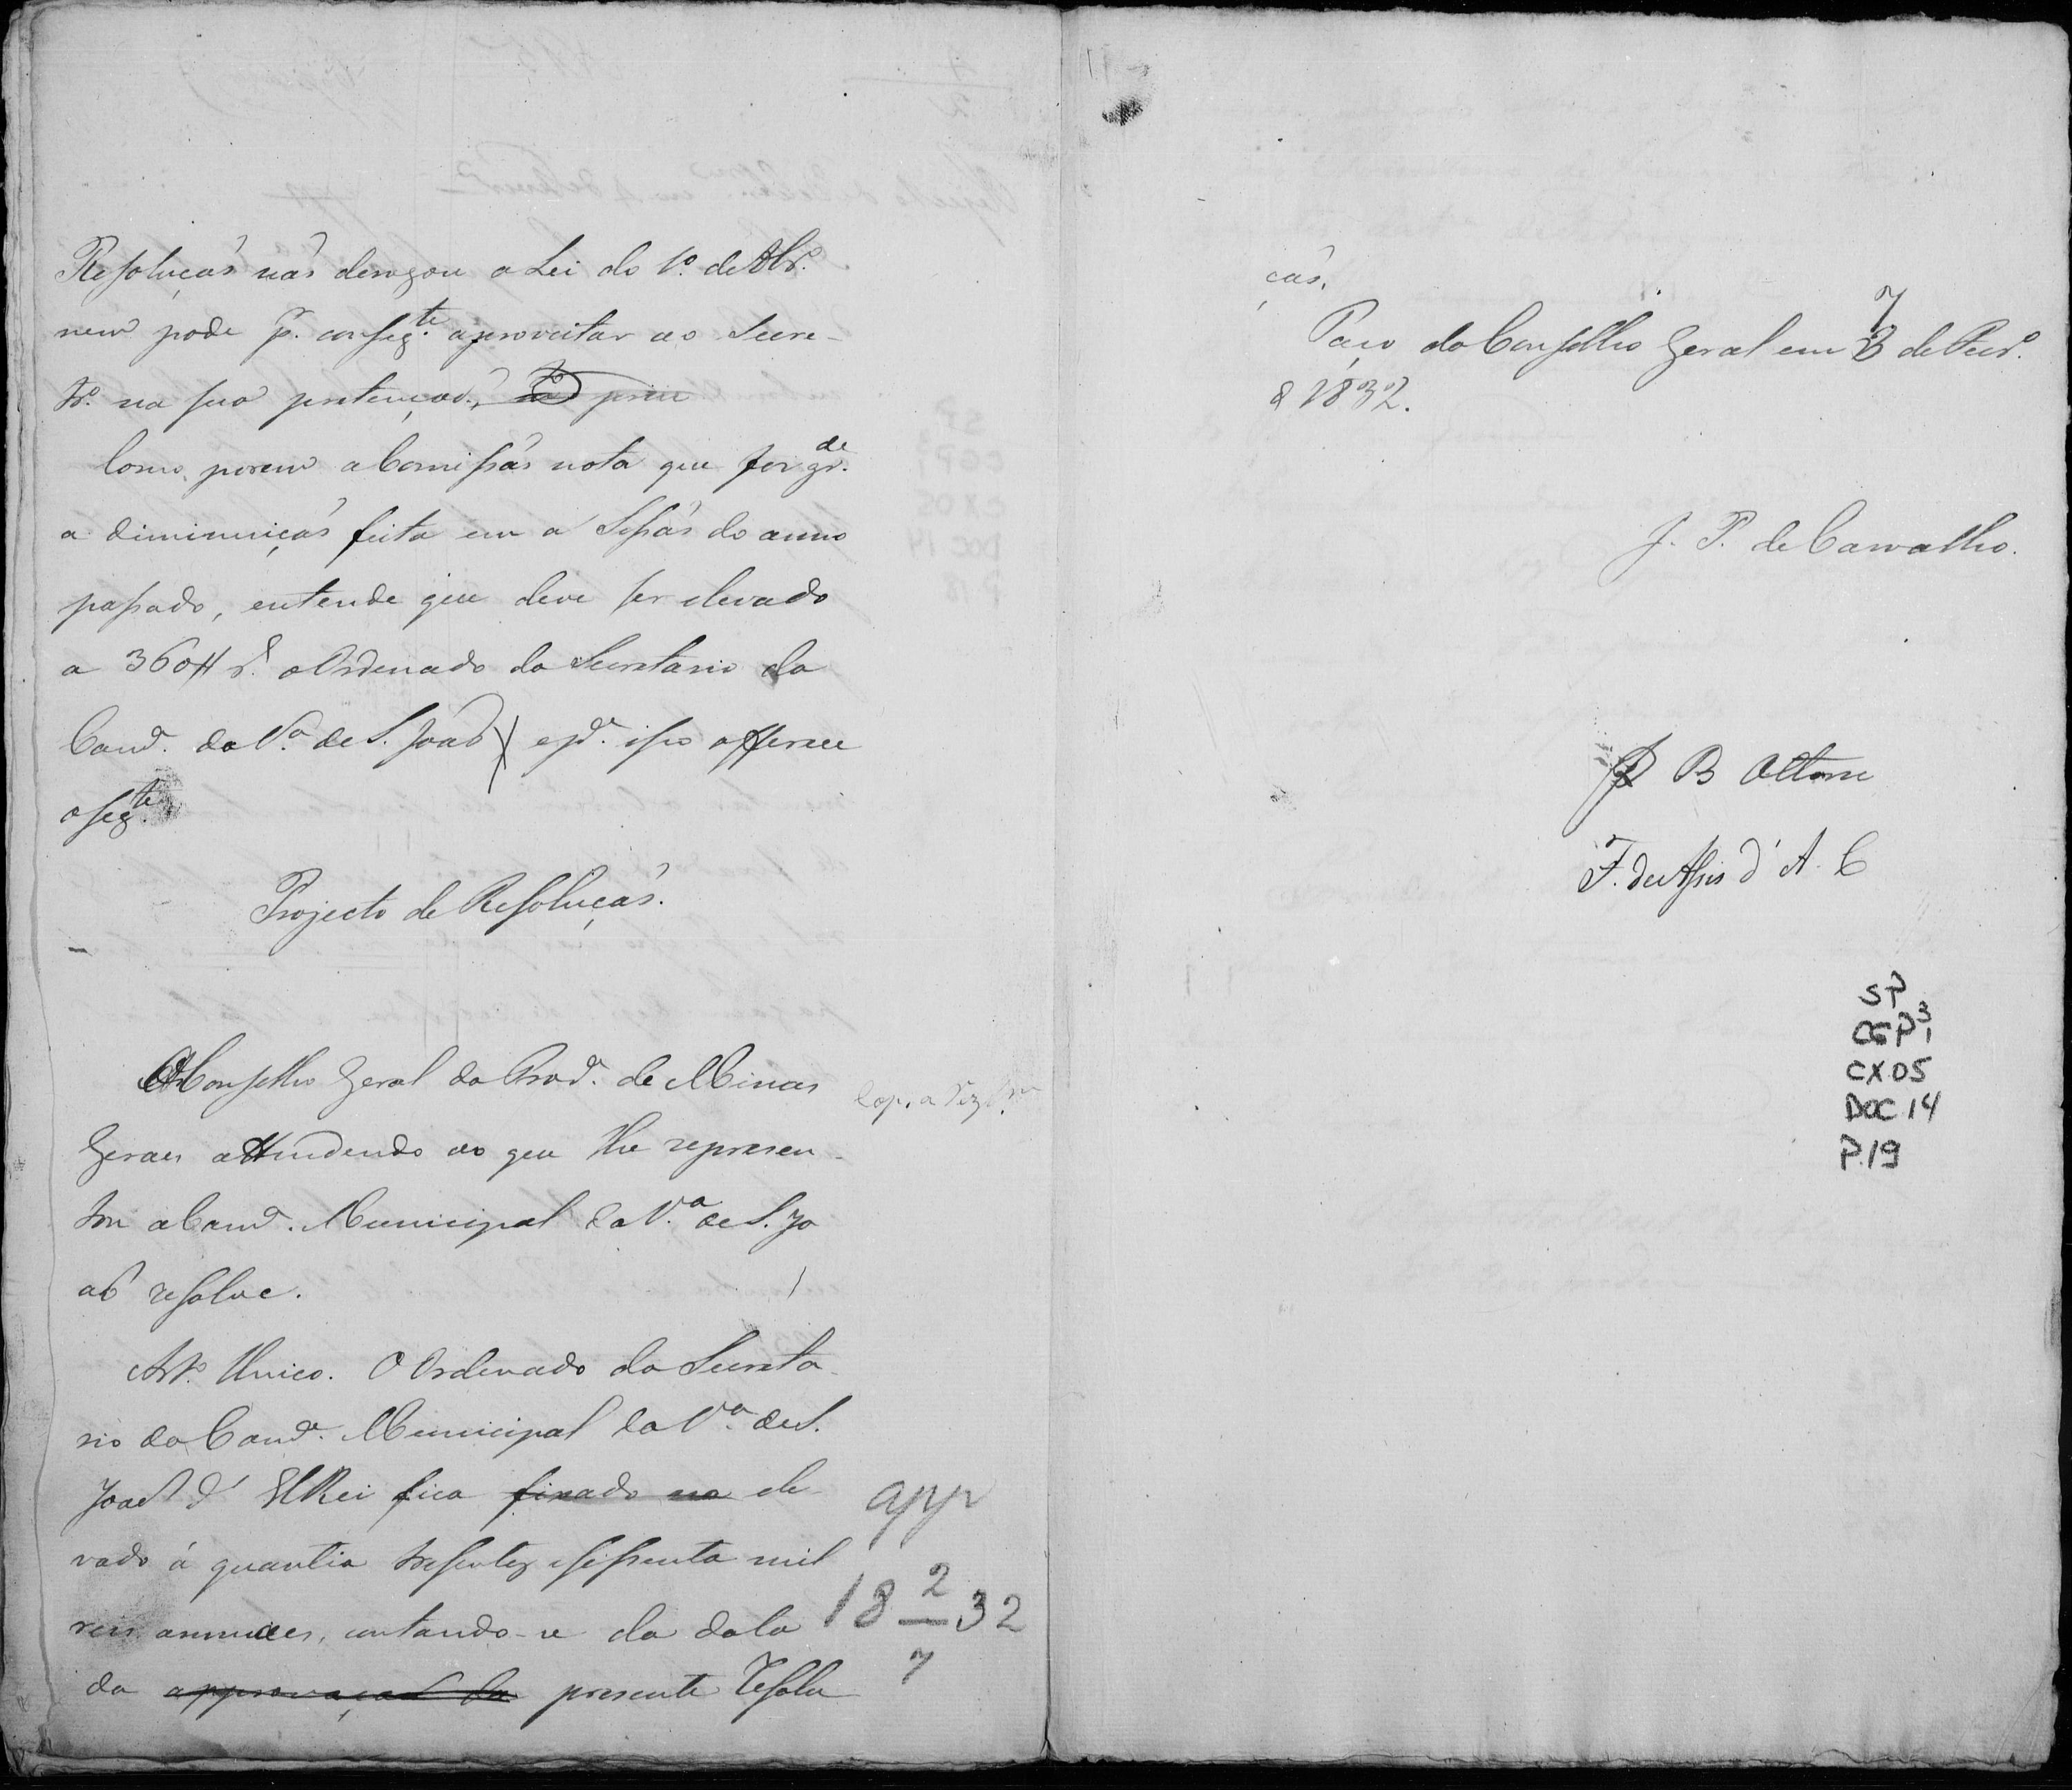 Resoluçaõ naõ derogou a Lei do 1º. de 8br.º
nem pode p.r conseg.te aproveitar ao Secre-
tr.º na sua pretençaõ,
Como porem a Comissaõ nota que foi gr.de
a diminuiçaõ feita em a Sessaõ do anno
passado, entende que deve ser elevado
a 360# r.s o Ordenado do Secretario da
Cam.ª da V.ª de S. Joaõ e p.ª isso offerece
o seg.te
Projecto de Resoluçaõ.
O Conselho Geral da Prov.ª de Minas
Geraes attendendo ao que lhe represen-
tou a Cam.ª Municipal da V.ª de S. Jo
aõ resolve.
Art.º Unico. O Ordenado do Secreta-
rio da Cam.ª Municipal da V.ª de S.
Joaõ d' ElRei fica fixado na ele-
vado á quantia tresentos e sessenta mil
reis annuaes, contando-se da data
da approvaçaõ da presente Resolu
app
18 2 32
7
çaõ.
Paço do Conselho Geral em 7 de Fevr.º
d 1832.
J. P. de Carvalho.
B Ottoni
F. de Assis d' A. C
SP
CGP³1
CX05
DOC 14
P.19